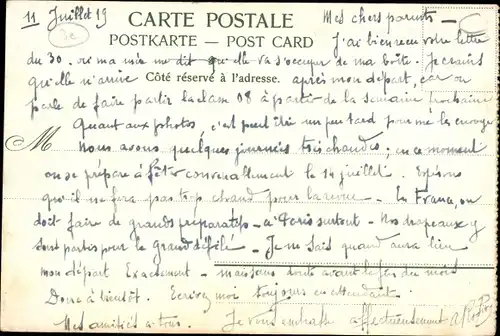 11 Juillet 19
CARTE POSTALE
POSTKARTE — POST CARD
Côté réservé à l'adresse.
Mes chers parents —
J'ai bien recu votre lettre
du 30. où ma mère me dit qu'elle va s'occuper de ma boîte. Je crains
qu'elle n'arrive après mon départ, car on
parle de faire partir la classe 08 à partir de la semaine prochaine
Quant aux photos, c'est peut être un peu tard pour me les envoyer
M
Nous avons quelques journées très chaudes; en ce moment
on se prépare à fêter convenablement le 14 juillet. Espérons
qu'il ne fera pas trop chaud pour la revue. En France, on
doit faire de grands préparatifs — à Paris surtout — Nos drapeaux y
sont partis pour le grand défilé — Je ne sais quand aura lieu
mon départ Exactement — mais sans doute avant la fin du mois
Donc à bientôt. Ecrivez moi toujours en attendant.
Mes amitiés à tous. Je vous embrasse affectueusement